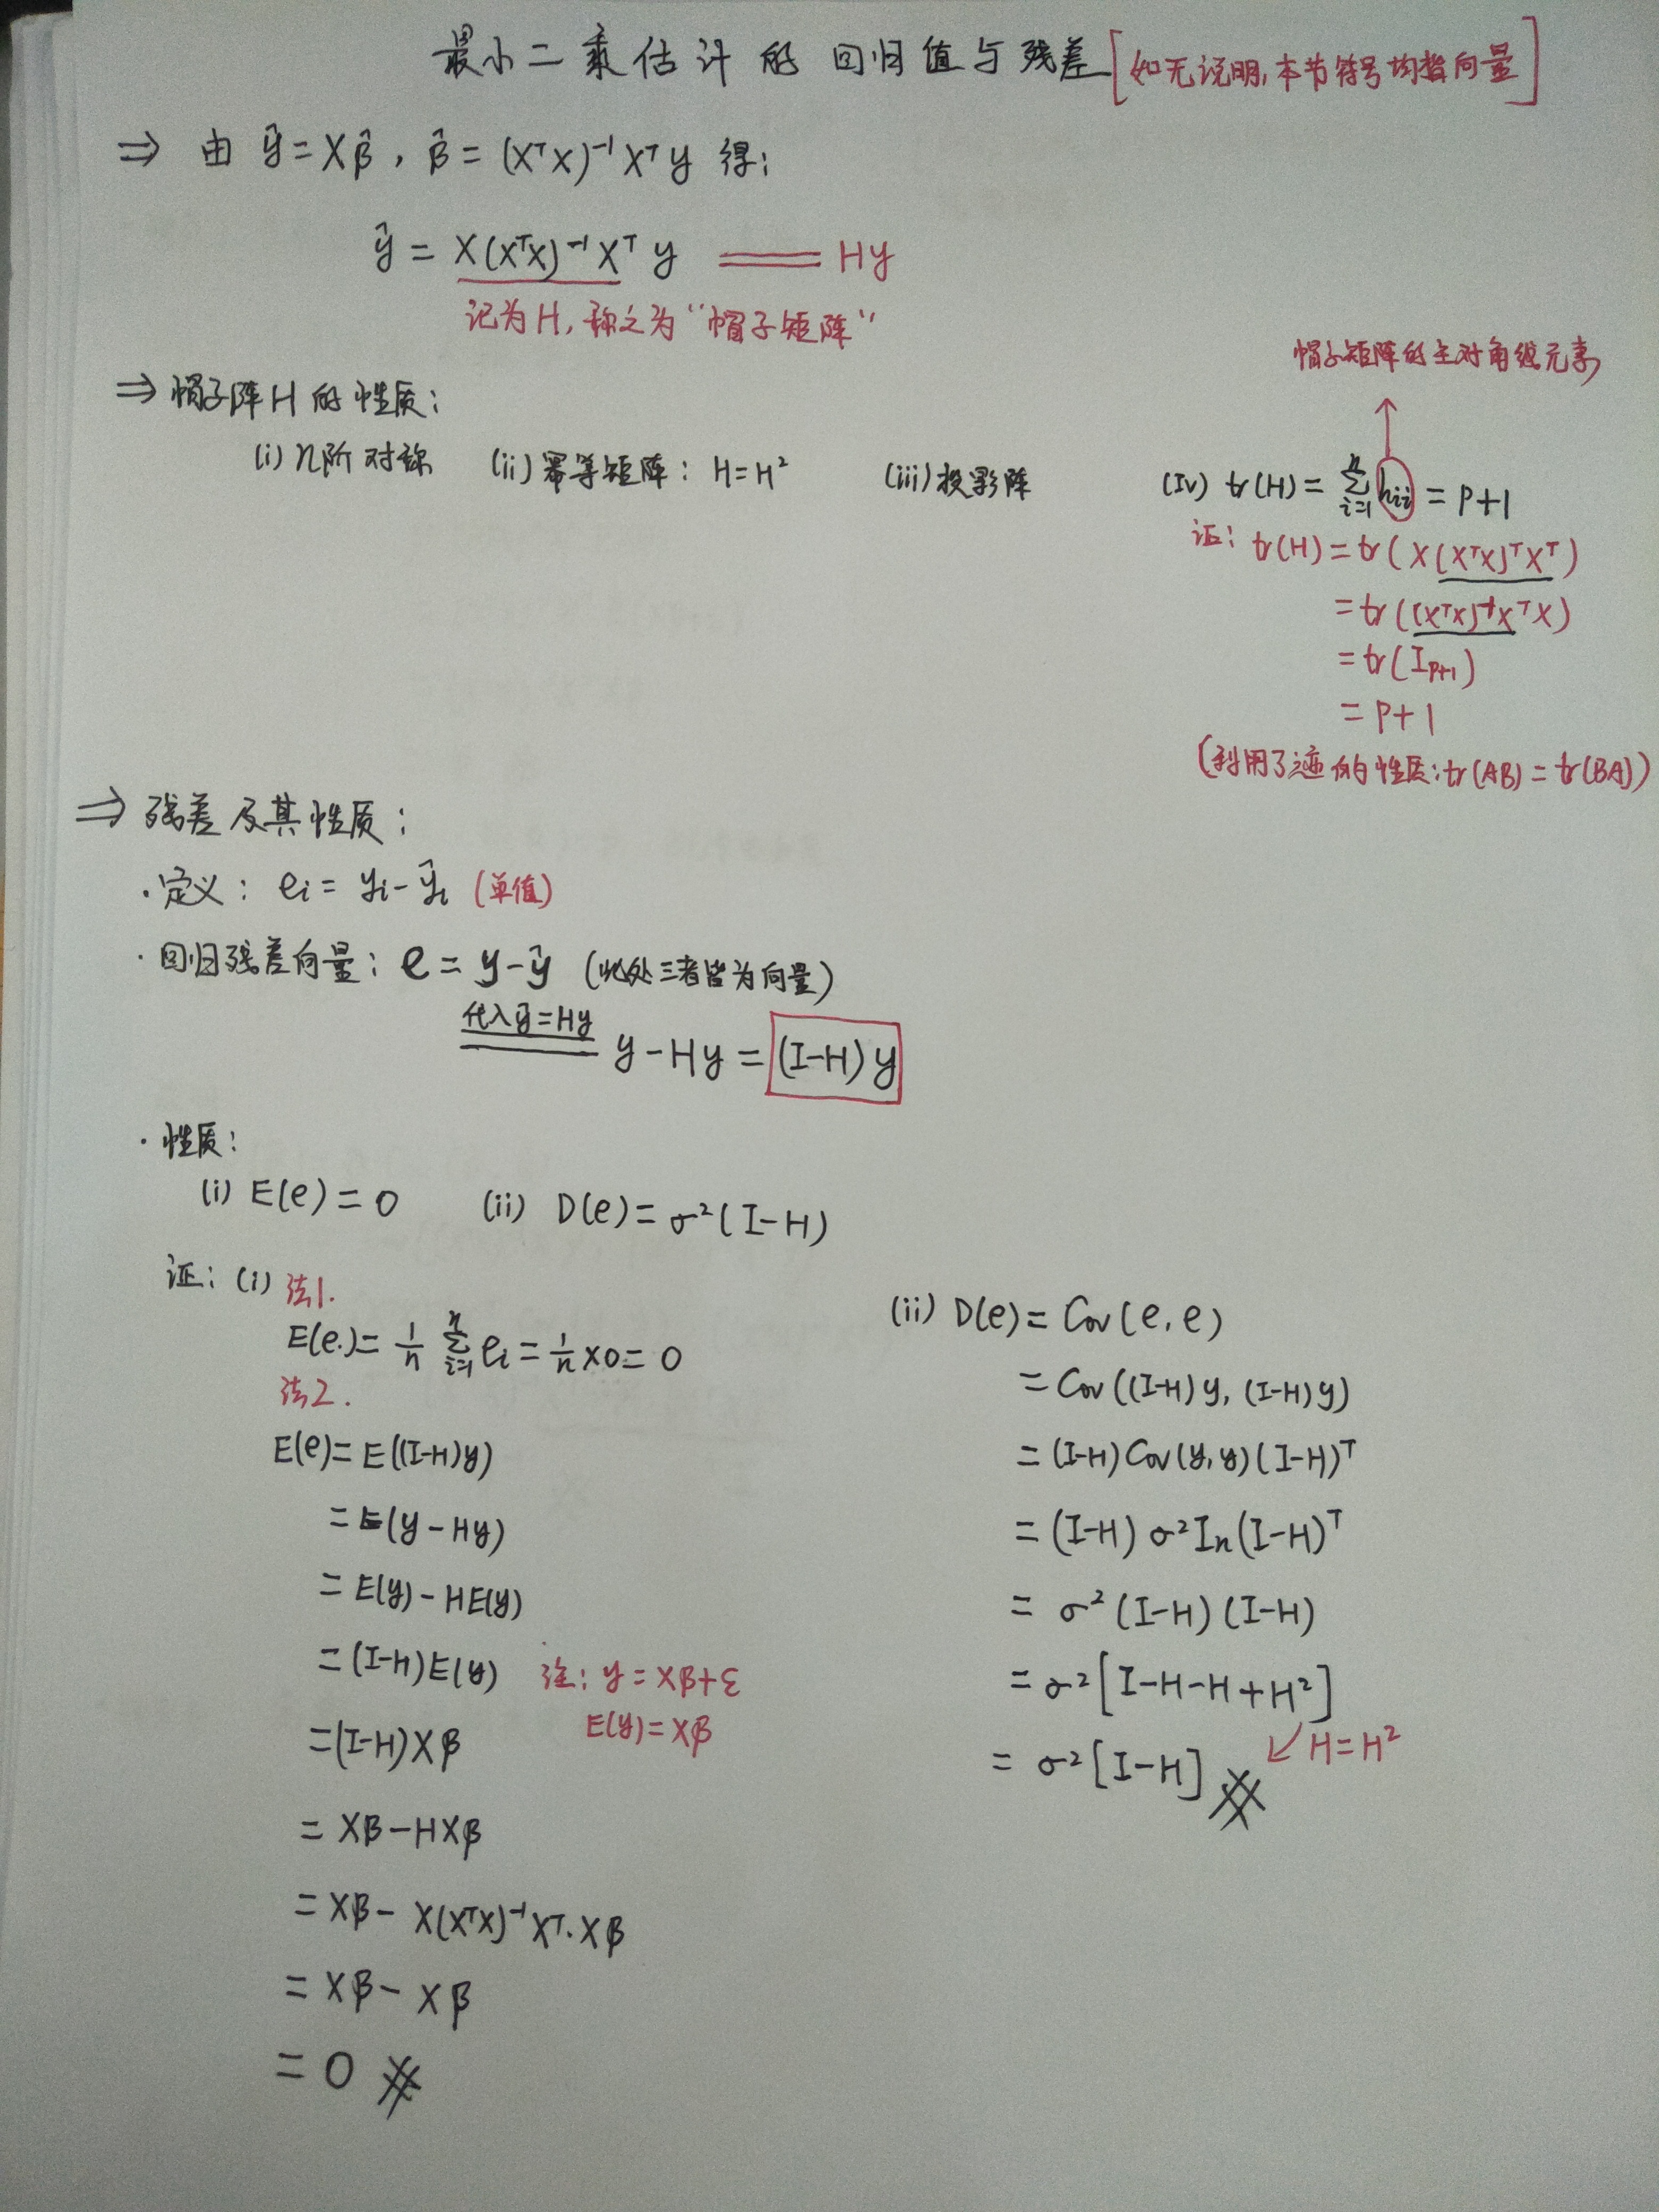 最小二乘估计的回归值与残差[如无说明,本节符号均指向量]
⇒ 由 ŷ=Xβ̂, β̂=(XᵀX)⁻¹Xᵀy 得:
ŷ = X(XᵀX)⁻¹Xᵀ y ═══ Hy
记为H, 称之为“帽子矩阵”
帽子矩阵的主对角线元素
⇒ 帽子阵H的性质:
(i) n阶对称 (ii) 幂等矩阵: H=H² (iii) 投影阵 (iv) tr(H) = Σᵢ₌₁ⁿ hᵢᵢ = p+1
证: tr(H) = tr(X(XᵀX)ᵀXᵀ)
= tr((XᵀX)⁻¹XᵀX)
= tr(I_{p+1})
= p+1
(利用了迹的性质: tr(AB) = tr(BA))
⇒ 残差及其性质:
· 定义: eᵢ = yᵢ-ŷᵢ (单值)
· 回归残差向量: e = y-ŷ (此处三者皆为向量)
代入ŷ=Hy
═══ y-Hy = (I-H)y
· 性质:
(i) E(e) = 0 (ii) D(e) = σ²(I-H)
证: (i) 法1.
E(e.) = 1/n Σᵢ₌₁ⁿ eᵢ = 1/n ×0 = 0
法2.
E(e) = E((I-H)y)
= E(y-Hy)
= E(y)-HE(y)
= (I-H)E(y) 注: y = Xβ+ε
E(y) = Xβ
= (I-H)Xβ
= Xβ-HXβ
= Xβ- X(XᵀX)⁻¹Xᵀ·Xβ
= Xβ- Xβ
= 0 #
(ii) D(e) = Cov(e, e)
= Cov((I-H)y, (I-H)y)
= (I-H)Cov(y,y)(I-H)ᵀ
= (I-H) σ²Iₙ(I-H)ᵀ
= σ²(I-H)(I-H)
= σ²[I-H-H+H²]
↙ H=H²
= σ²[I-H] #